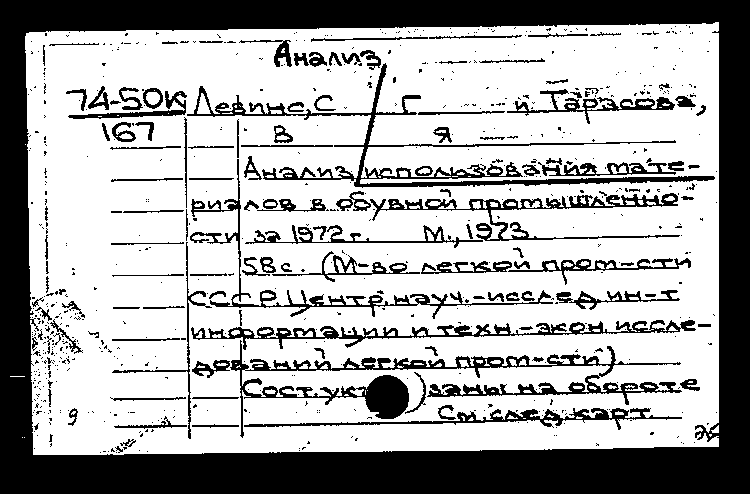 Анализ
74-50К Левинс, С Г и Тарасова,
167 В Я
Анализ использования мате-
риалов в обувной промышленно-
сти за 1972 г. М., 1973.
58 с. (М-во легкой пром-сти
СССР. Центр. науч.-исслед. ин-т
информации и техн.-экон. иссле-
дований легкой пром-сти).
на обороте
См. след. карт
9